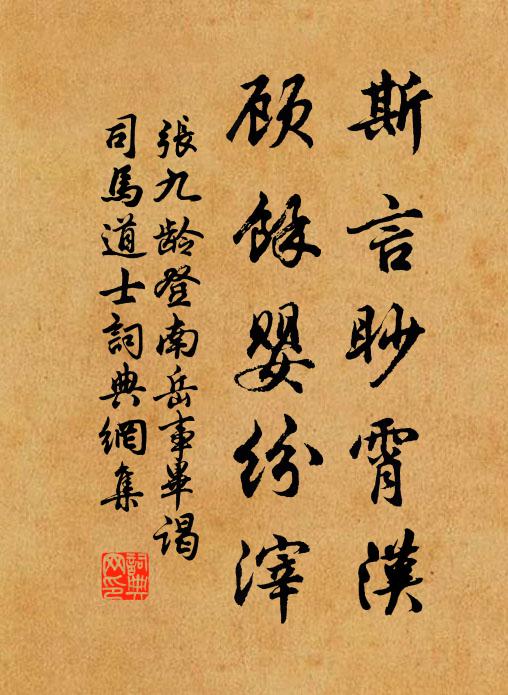 斯言眇霄漢
顧餘嬰紛滓
張九齡登南岳事畢謁
司馬道士詞典網集
詞典网印